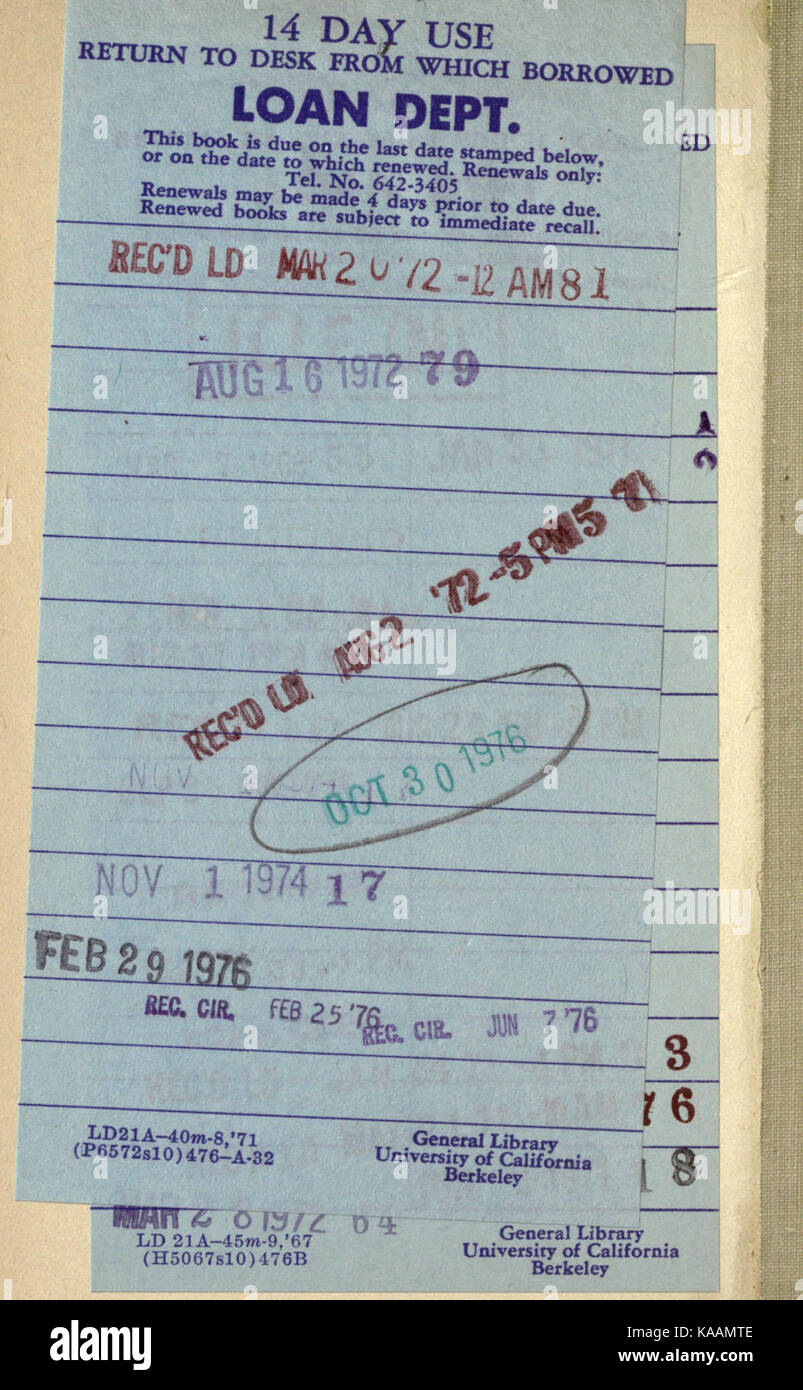 14 DAY USE
RETURN TO DESK FROM WHICH BORROWED
LOAN DEPT.
This book is due on the last date stamped below,
or on the date to which renewed. Renewals only:
Tel. No. 642-3405
Renewals may be made 4 days prior to date due.
Renewed books are subject to immediate recall.
ED
REC'D LD MAR 20 '72 -12 AM 81
AUG 16 1972 79
REC'D LD AUG 2 '72 -5 PM 5
OCT 30 1976
NOV
NOV 1 1974 17
FEB 29 1976
REC. CIR. FEB 25 '76
REC. CIR. JUN 7 '76
3
76
18
LD21A–40m-8,'71
(P6572s10)476–A-32
General Library
University of California
Berkeley
MAR 28 1972 64
LD 21A–45m-9,'67
(H5067s10)476B
General Library
University of California
Berkeley
alamy
Image ID: KAAMTE
www.alamy.com